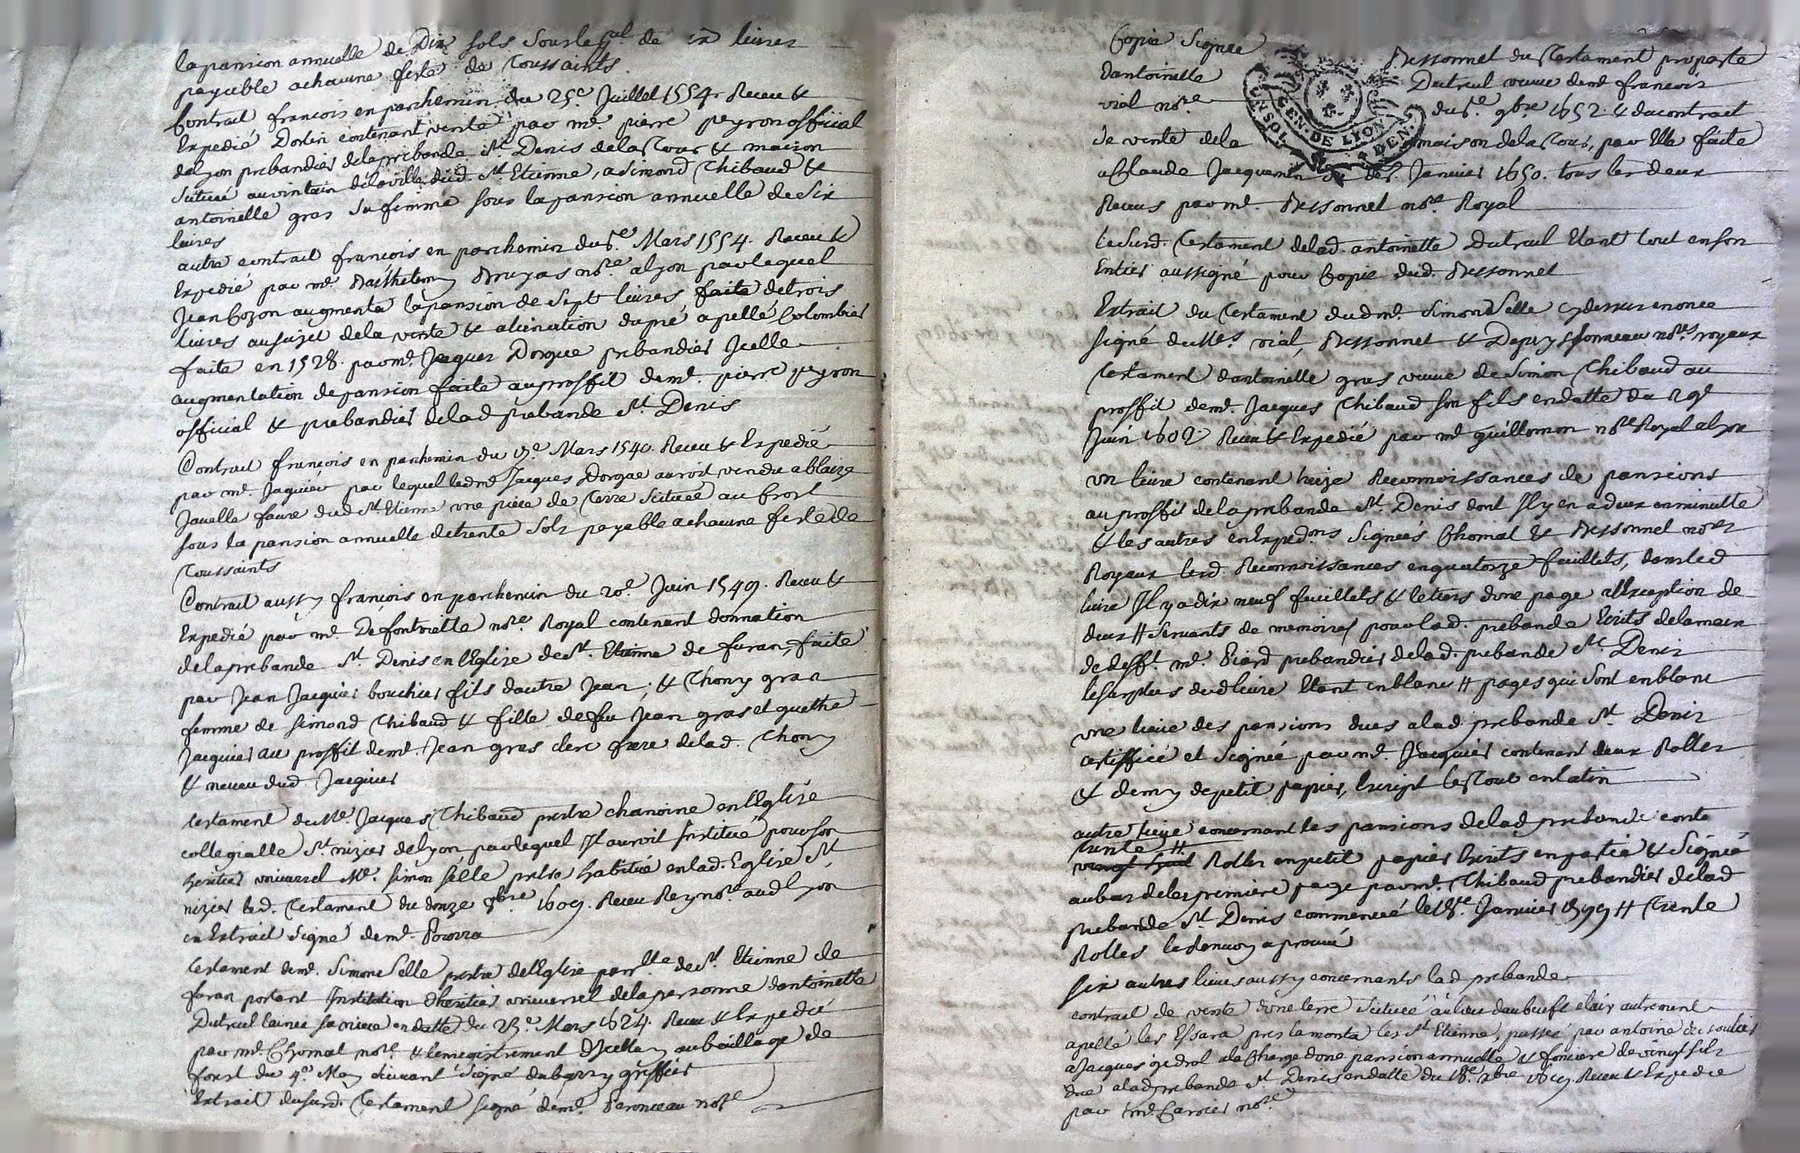 la pansion annuelle de Dix sols sous le pal de ix livres
payable a chacune feste de Toussaints
Contrait francois en parchemin du 25e Juillet 1554 Receu &
Expedié Dorlin contenant vente par me. pierre peyron official
de lyon prebandier de la prebande st Denis de la Cour & maison
situeé au vintain de la ville dud. st Etienne, a Simond Thibaud &
antoinette gras sa femme sous la pansion annuelle de Six
livres
autre contrait francois en parchemin du 5e. Mars 1554. Receu &
Expedié par me Barthelemy Bruyas nore a lyon par lequel
Jean Cozon augmenta la pansion de Sept livres faite de trois
livres au sujet de la vente & alienation du pré apellé Colombier
faite en 1528. par me. Jaques Dorgue prebandier Jcelle
augmentation de pansion faite au proffit de me. pierre peyron
official & prebandier de lad prebande st. Denis
Contrait francois en parchemin du Mars 1540. Receu & Expedié
par me. Jaquier par lequel led me Jacques Dorgue auroit vendu a blaize
Javelle faure dud st Etienne une piece de Terre Scitueé au
sous la pansion annuelle de trente sols payable a chacune feste de
Toussaints
Contrait aussy francois en parchemin du 20e. Juin 1549. Receu &
Expedié par me Defontnette nore. Royal contenant donnation
de la prebande st. Denis en l'Eglise de st. Etienne de furan, faite
par Jean Jacquier bouchier fils d'autre Jean, & Thony gran
femme de simond Thibaud & fille de feu Jean gras et guethe
Jacquier au proffit de me. Jean gras clerc frere de lad. Thony
& neveu dud Jacquier
Testament de Me. Jacques Thibaud prestre chanoine en l'Eglise
collegialle st. nizier de lyon par lequel Jl auroit Institué pour son
heritier universel Me. Simon Sille pretre habitué en lad. Eglise st.
nizier led. Testament du donze 9bre 1609. Receu Rey nore. aud lyon
en Extrait signé de me.
Testament de me. Simon Sille prestre de l'Eglise parlle de st. Etienne de
furan portant Institution d'heritier universel de la personne d'antoinette
Dutreul lainee sa niece en datte du 23e. Mars 1624. Receu & Expedié
par me. Thomat nore. & lenregistrement d'Jcelluy au baillage de
forest du 4e. May suivant signé dubessy greffier
Extrait du susd. Testament signé de me. Peronceau nore
Copie signée Bessonnel du Testament proparte
dantoinette Dutreul veuve de me francois
vial nore du 5e. 9bre 1652. & du contrait
de vente de la maison de la Cour, par Elle faite
a Claude Jacquemin du Janvier 1650. tous les deux
Receus par me. Bessonnel nore Royal
Le susd. Testament de lad. antoinette Dutreul Etant tout en son
Entier aussigné pour Copie dud. Bessonnel
Extrait du Testament dud me. Simond Sille cy dessus enoncé
signé de Mes. vial, Bessonnel & Depuys nores. royaux
Testament d'antoinette gras veuve de Simon Thibaud au
proffit de me. Jacques Thibaud son fils en datte du 29e
Juin 1602. Receu & Expedié par me guillomon nore Royal a lyon
un livre contenant treize Reconnoissances de pansions
au proffit de la prebande st. Denis dont Jl y en a deux en minutte
& les autres en Expedons signeés Thomat & Bessonnel nores
Royaux lesd. Reconnoissances en quatorze feuillets, dans led
livre Jl y a dix neuf feuillets & le tiers d'une page a l'Exception de
deux # servants de memoires pour lad. prebande Ecrits de la main
de defft. me. Biard prebandier de lad. prebande st. Denis
le surplus dud livre Etant en blanc # pages qui sont en blanc
une lieve des pansions dues a lad prebande st. Denis
certiffieé et signeé par me. Jacquier contenant deux Rolles
& demy de petit papier, Escript le tout en latin
autre lieve concernant les pansions de lad prebande conte
trente #
vingt huit Rolles en petit papier Ecrits en partie & signeé
au bas de la premiere page par me. Thibaud prebandier de lad
prebande st. Denis commenceé le 18e. Janvier 1599 # Trente
Rolles le renvoy aprouvé
Six autres lieves aussy concernants lad prebande
contrait de vente d'une terre situeé au lieu daubeuf Elair autrement
apellé les Essars pres la monta les st. Etienne, passé par antoine
a Jacques gidrol a la Charge d'une pansion annuelle & fonciere de vingt sols
due a lad prebande st. Denis en datte du 18e. xbre Receu & Expedié
par me. Carrier nore
GEN. DE LYON